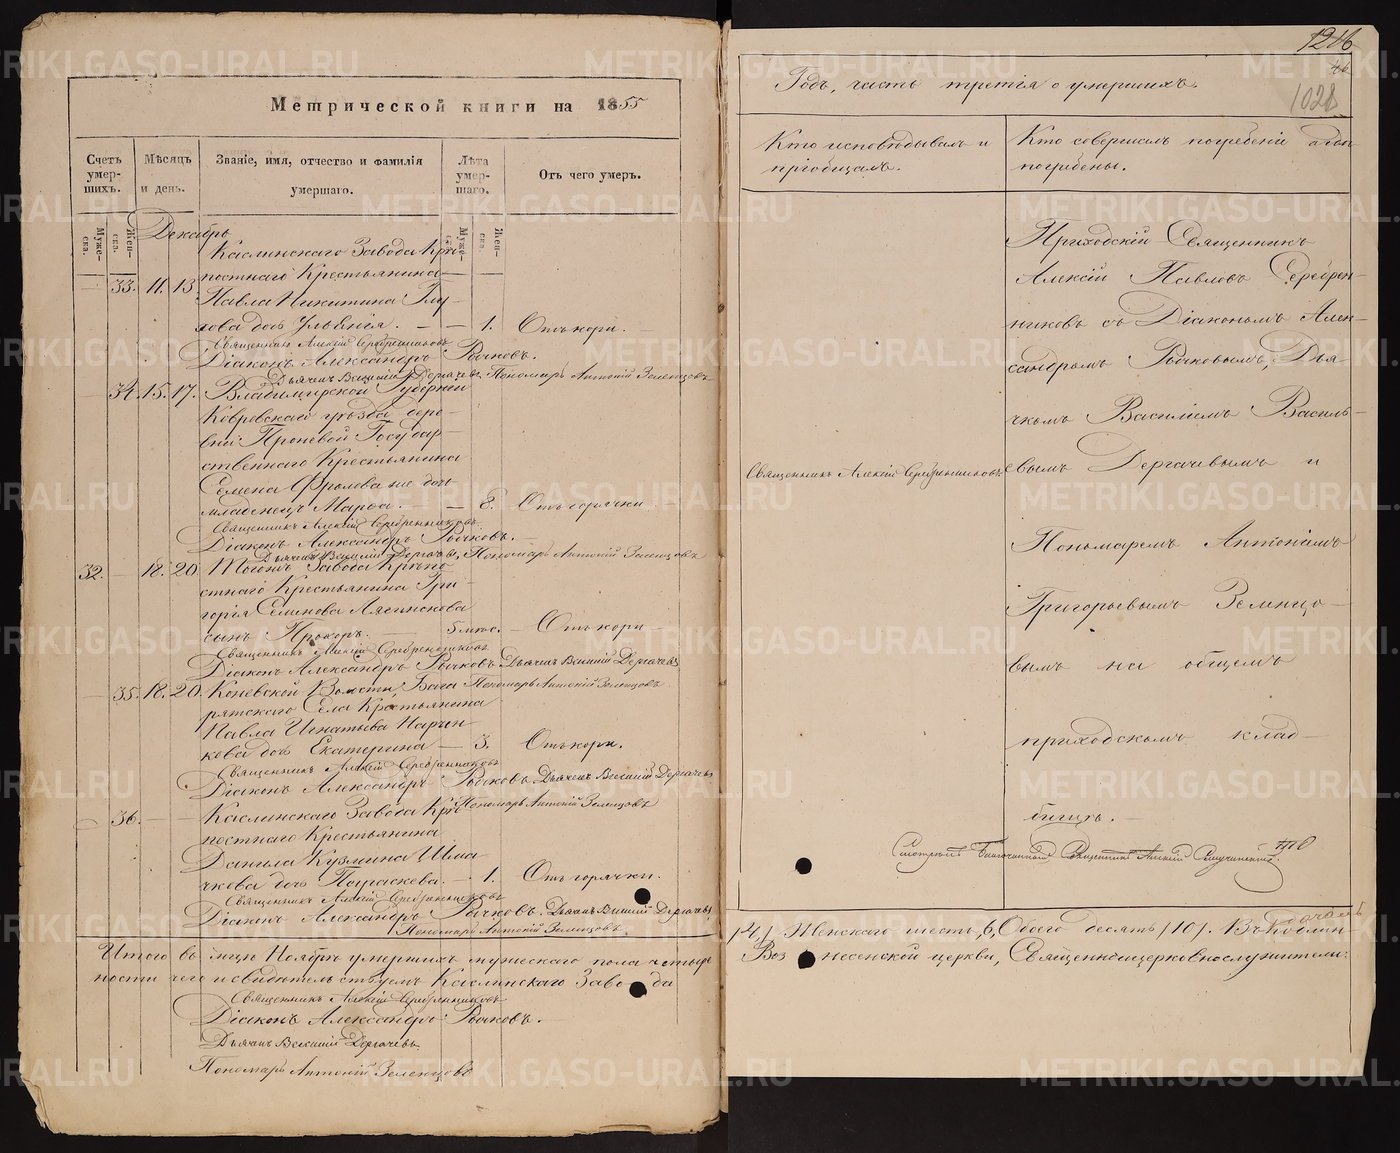 Метрической книги на 1855
Счетъ умер-шихъ.
Мѣсяцъ и день.
Званіе, имя, отчество и фамилія умершаго.
Лѣта умер-шаго.
Отъ чего умеръ.
Муже-ска.
Жен-ска.
Муже-
Жен-ска.
Декабрь
Каслинскаго Завода Крѣ-
постнаго Крестьянина
33. 11. 13. Павла Никитина Глу-
хова дочь — 1. Отъ кори.
Священникъ Алексій Серебренниковъ
Діаконъ Александръ Рычковъ.
Дьячекъ Василій Дергачевъ Пономарь Антоній Земенцовъ
34. 15. 17. Владимірской Губерніи
Ковровскаго уѣзда дере-
вни Государ-
ственнаго Крестьянина
Семена Фролова дочь
младенецъ Марѳа. — 8. Отъ горячки
Священникъ Алексій Серебренниковъ
Діаконъ Александръ Рычковъ.
Дьячекъ Василій Дергачевъ, Пономарь Антоній Земенцовъ
32. 18. 20. Тогожъ Завода Крѣпо-
стнаго Крестьянина Гри-
горія Семенова
сынъ Прохоръ. — 5 мѣс. — Отъ кори —
Священникъ Алексій Серебренниковъ
Діаконъ Александръ Рычковъ Дьячекъ Василій Дергачевъ
35. 18. 20. Коневской Волости, Бага- Пономарь Антоній Земенцовъ
рякскаго Села Крестьянина
Павла Игнатьева
кова дочь Екатерина — 3. Отъ кори.
Священникъ Алексій Серебренниковъ
Діаконъ Александръ Рычковъ Дьячекъ Василій Дергачевъ
36. — — Каслинскаго Завода Крѣ- Пономарь Антоній Земенцовъ
постнаго Крестьянина
Данила Кузмина Шма-
кова дочь Параскева. — 1. Отъ горячки.
Священникъ Алексій Серебренниковъ
Діаконъ Александръ Рычковъ. Дьячекъ Василій Дергачевъ
Пономарь Антоній Земенцовъ
Итого въ мцѣ Ноябрѣ умершихъ мужескаго пола четыре
ности чего и свидѣтельствуемъ Каслинскаго Завода
Священникъ Алексій Серебренниковъ
Діаконъ Александръ Рычковъ.
Дьячекъ Василій Дергачевъ
Пономарь Антоній Земенцовъ
1216
1028
Годъ, часть третія о умершихъ.
Кто исповѣдывалъ и
пріобщалъ.
Кто совершалъ погребеніе и гдѣ
погребены.
Священникъ Алексій Серебренниковъ
Приходскій Священникъ
Алексій Павловъ Серебрен-
никовъ съ Діакономъ Алек-
сандромъ Рычковымъ, Дья-
чкомъ Василіемъ Василь-
евымъ Дергачевымъ и
Пономаремъ Антоніемъ
Григорьевымъ Земенцо-
вымъ на общемъ
приходскомъ клад-
бищѣ. —
Смотрѣлъ Благочинный Священникъ Алексій
/4,/ Женскаго шесть, 6, Обоего десять /10/. Въ подлин-
Вознесенской церкви, Священноцерковнослужители:
METRIKI.GASO-URAL.RU